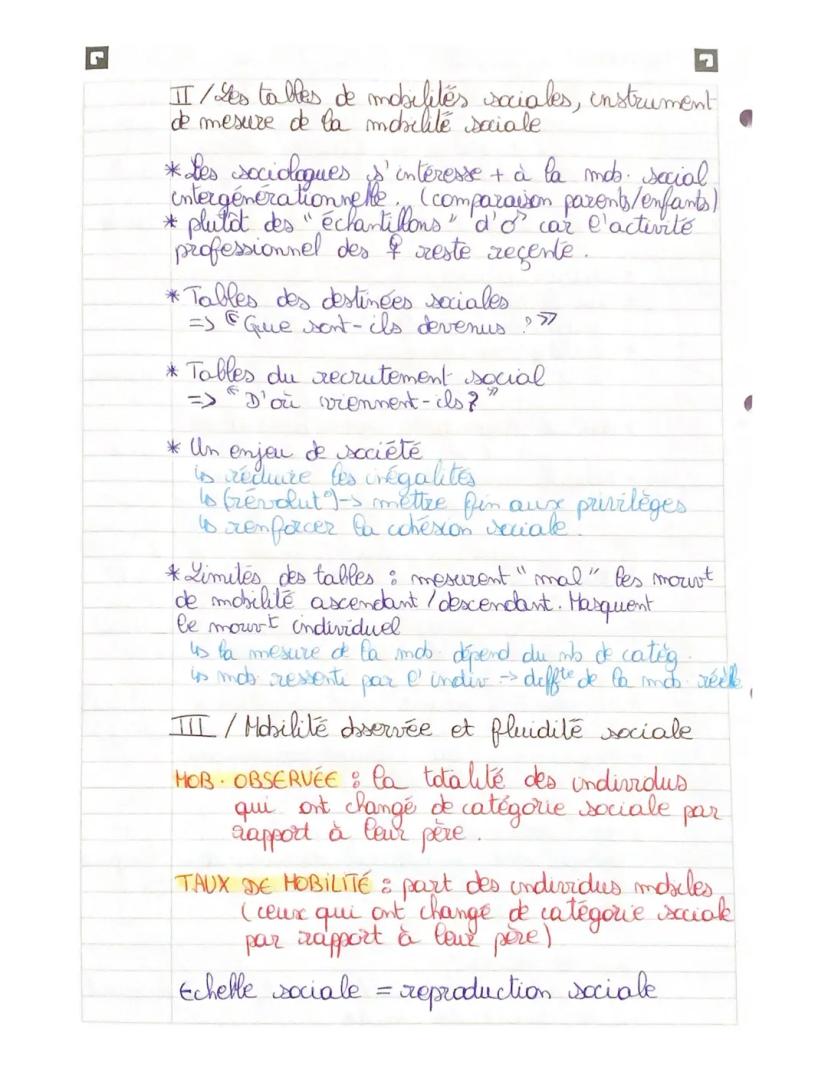 II / Les tables de mobilités sociales, instrument
de mesure de la mobilité sociale
* Les sociologues s'intéresse + à la mob. social
intergénérationnelle. (comparaison parents/enfants)
* plutôt des "échantillons" d'♂ car l'activité
professionnel des ♀ reste reçente.
* Tables des destinées sociales
=> "Que sont-ils devenus ?"
* Tables du recrutement social
=> "D'où viennent-ils?"
* Un enjeu de société
↳ réduire les inégalités
↳ (révolut°)-> mettre fin aux privilèges
↳ renforcer la cohésion sociale.
* Limités des tables : mesurent "mal" les mouvt
de mobilité ascendant / descendant. Masquent
le mouvt individuel
↳ la mesure de la mob. dépend du nb de catég.
↳ mob. ressenti par l'indiv -> deffte de la mob. réelle
III / Mobilité observée et fluidité sociale
MOB. OBSERVÉE : la totalité des individus
qui ont changé de catégorie sociale par
rapport à leur père.
TAUX DE MOBILITÉ : part des individus mobiles
(ceux qui ont changé de catégorie sociale
par rapport à leur père)
Echelle sociale = reproduction sociale